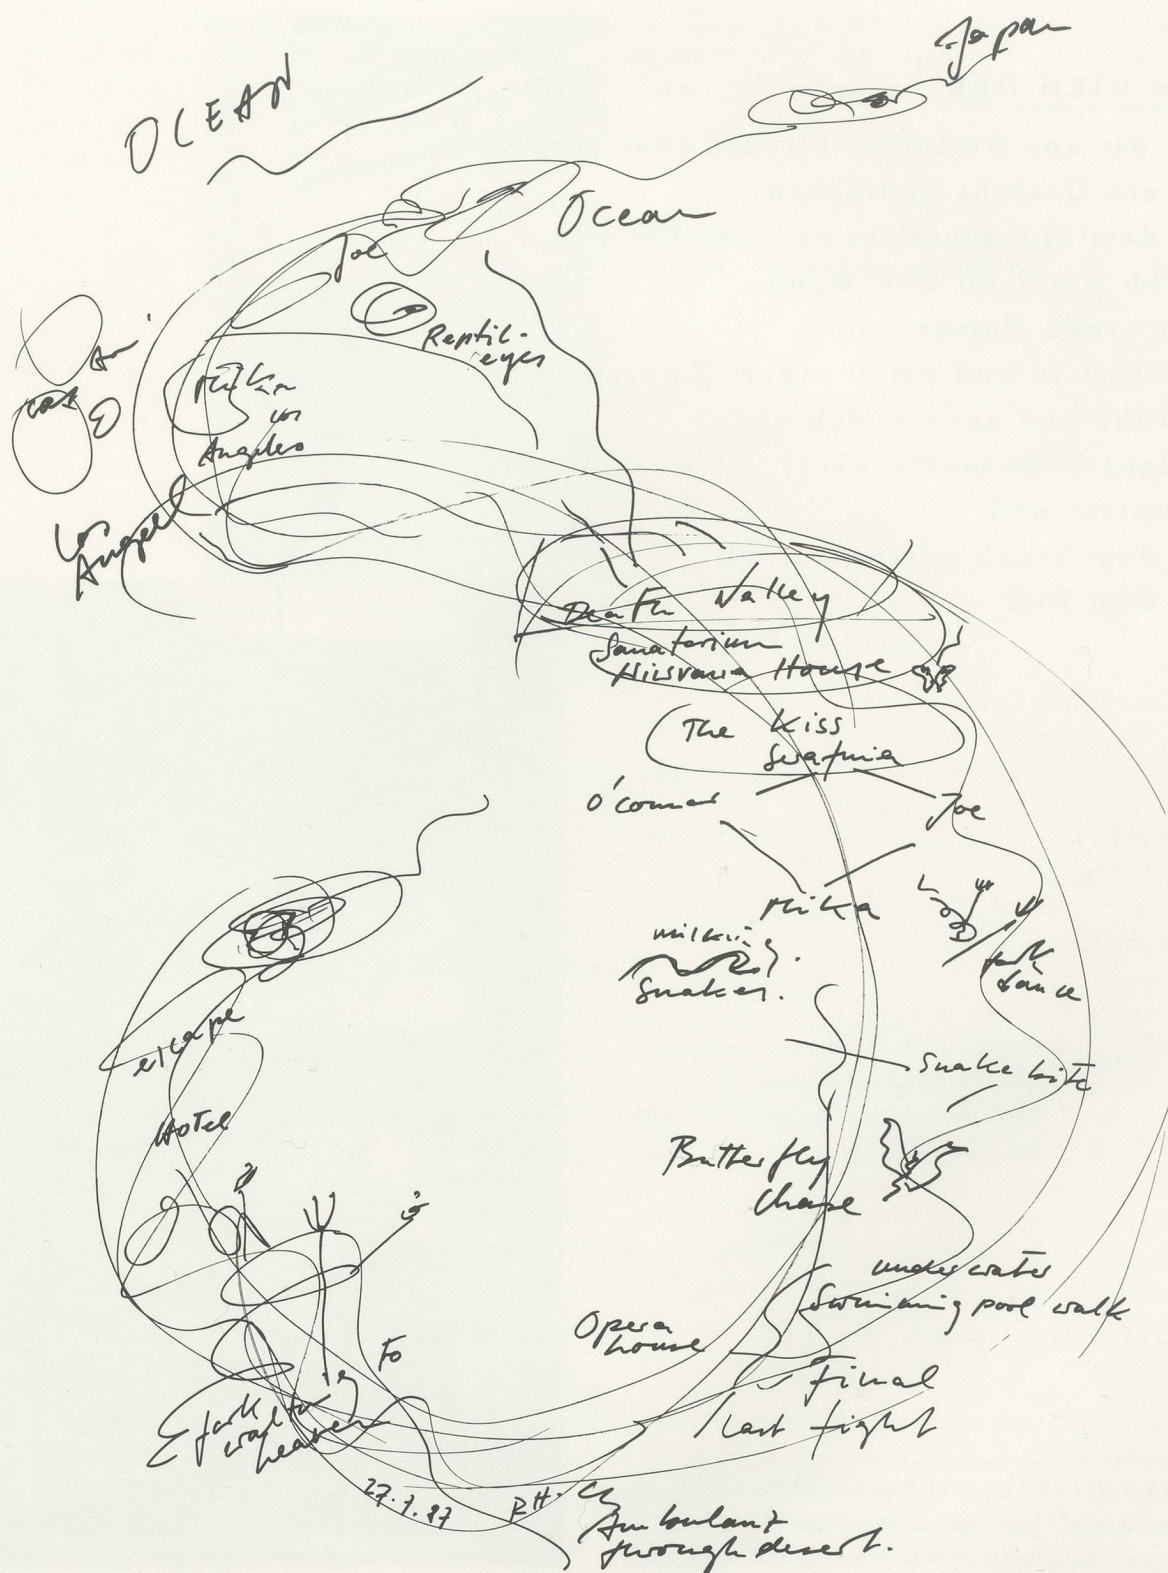 Japan
OCEAN
Ocean
Joe
Reptil-
eyes
Mika
Los
Angeles
Los
Angeles
Death Valley
Sanatorium
Nirvana House
The Kiss
Swatma
O'connor
Joe
Mika
milking
Snakes.
dance
Snake bite
escape
Hotel
Butterfly
Chase
under water
Swimming pool walk
Opera
house
final
last fight
Fo
fork
heaven
27.7.87
RH.
Ambulanz
through desert.